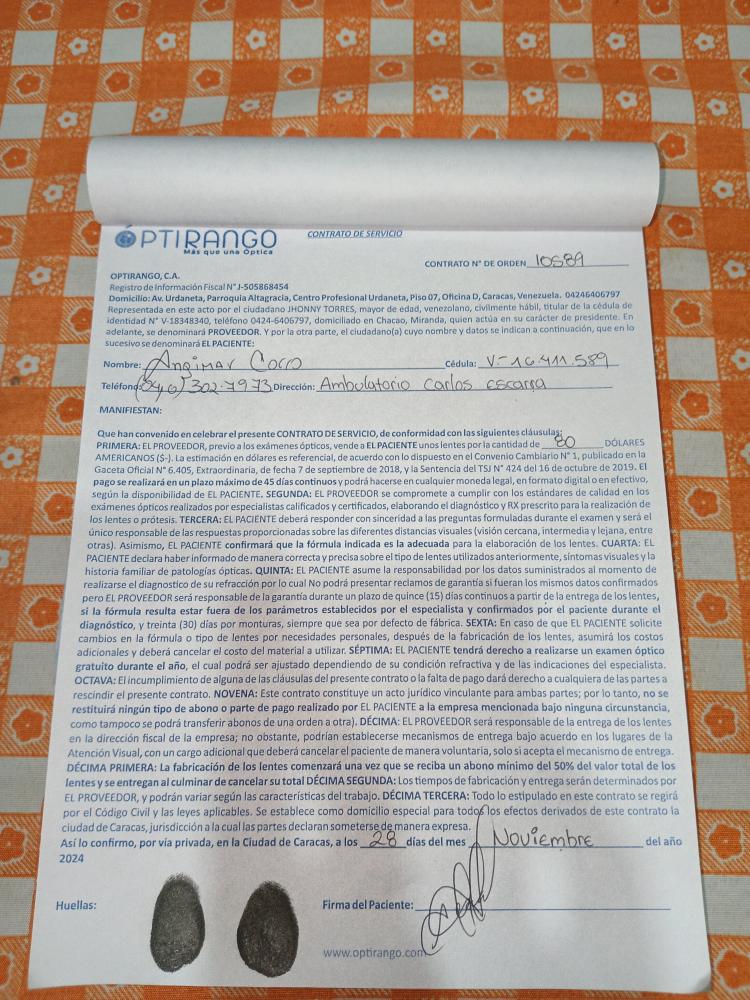 OPTIRANGO
Más que una Óptica
CONTRATO DE SERVICIO
CONTRATO N° DE ORDEN 10589
OPTIRANGO, C.A.
Registro de Información Fiscal N° J-505868454
Domicilio: Av. Urdaneta, Parroquia Altagracia, Centro Profesional Urdaneta, Piso 07, Oficina D, Caracas, Venezuela. 04246406797
Representada en este acto por el ciudadano JHONNY TORRES, mayor de edad, venezolano, civilmente hábil, titular de la cédula de
identidad N° V-18348340, teléfono 0424-6406797, domiciliado en Chacao, Miranda, quien actúa en su carácter de presidente. En
adelante, se denominará PROVEEDOR. Y por la otra parte, el ciudadano(a) cuyo nombre y datos se indican a continuación, que en lo
sucesivo se denominará EL PACIENTE:
Nombre: Angimar Corro Cédula: V-16.411.589
Teléfono: (0416) 302-7973 Dirección: Ambulatorio Carlos escarra
MANIFIESTAN:
Que han convenido en celebrar el presente CONTRATO DE SERVICIO, de conformidad con las siguientes cláusulas:
PRIMERA: EL PROVEEDOR, previo a los exámenes ópticos, vende a EL PACIENTE unos lentes por la cantidad de 80 DÓLARES
AMERICANOS ($-). La estimación en dólares es referencial, de acuerdo con lo dispuesto en el Convenio Cambiario N° 1, publicado en la
Gaceta Oficial N° 6.405, Extraordinaria, de fecha 7 de septiembre de 2018, y la Sentencia del TSJ N° 424 del 16 de octubre de 2019. El
pago se realizará en un plazo máximo de 45 días continuos y podrá hacerse en cualquier moneda legal, en formato digital o en efectivo,
según la disponibilidad de EL PACIENTE. SEGUNDA: EL PROVEEDOR se compromete a cumplir con los estándares de calidad en los
exámenes ópticos realizados por especialistas calificados y certificados, elaborando el diagnóstico y RX prescrito para la realización de
los lentes o prótesis. TERCERA: EL PACIENTE deberá responder con sinceridad a las preguntas formuladas durante el examen y será el
único responsable de las respuestas proporcionadas sobre las diferentes distancias visuales (visión cercana, intermedia y lejana, entre
otras). Asimismo, EL PACIENTE confirmará que la fórmula indicada es la adecuada para la elaboración de los lentes. CUARTA: EL
PACIENTE declara haber informado de manera correcta y precisa sobre el tipo de lentes utilizados anteriormente, síntomas visuales y la
historia familiar de patologías ópticas. QUINTA: EL PACIENTE asume la responsabilidad por los datos suministrados al momento de
realizarse el diagnostico de su refracción por lo cual No podrá presentar reclamos de garantía si fueran los mismos datos confirmados
pero EL PROVEEDOR será responsable de la garantía durante un plazo de quince (15) días continuos a partir de la entrega de los lentes,
si la fórmula resulta estar fuera de los parámetros establecidos por el especialista y confirmados por el paciente durante el
diagnóstico, y treinta (30) días por monturas, siempre que sea por defecto de fábrica. SEXTA: En caso de que EL PACIENTE solicite
cambios en la fórmula o tipo de lentes por necesidades personales, después de la fabricación de los lentes, asumirá los costos
adicionales y deberá cancelar el costo del material a utilizar. SÉPTIMA: EL PACIENTE tendrá derecho a realizarse un examen óptico
gratuito durante el año, el cual podrá ser ajustado dependiendo de su condición refractiva y de las indicaciones del especialista.
OCTAVA: El incumplimiento de alguna de las cláusulas del presente contrato o la falta de pago dará derecho a cualquiera de las partes a
rescindir el presente contrato. NOVENA: Este contrato constituye un acto jurídico vinculante para ambas partes; por lo tanto, no se
restituirá ningún tipo de abono o parte de pago realizado por EL PACIENTE a la empresa mencionada bajo ninguna circunstancia,
como tampoco se podrá transferir abonos de una orden a otra). DÉCIMA: EL PROVEEDOR será responsable de la entrega de los lentes
en la dirección fiscal de la empresa; no obstante, podrían establecerse mecanismos de entrega bajo acuerdo en los lugares de la
Atención Visual, con un cargo adicional que deberá cancelar el paciente de manera voluntaria, solo si acepta el mecanismo de entrega.
DÉCIMA PRIMERA: La fabricación de los lentes comenzará una vez que se reciba un abono mínimo del 50% del valor total de los
lentes y se entregan al culminar de cancelar su total DÉCIMA SEGUNDA: Los tiempos de fabricación y entrega serán determinados por
EL PROVEEDOR, y podrán variar según las características del trabajo. DÉCIMA TERCERA: Todo lo estipulado en este contrato se regirá
por el Código Civil y las leyes aplicables. Se establece como domicilio especial para todos los efectos derivados de este contrato la
ciudad de Caracas, jurisdicción a la cual las partes declaran someterse de manera expresa.
Así lo confirmo, por vía privada, en la Ciudad de Caracas, a los 28 días del mes Noviembre del año
2024
Huellas:
Firma del Paciente:
www.optirango.com